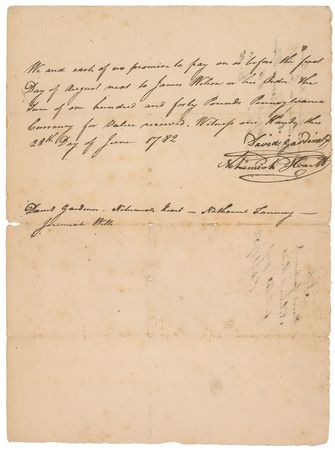 We and each of us promise to pay on or before the first
Day of August next to James Wilson or his Order the
Sum of one hundred and forty Pounds Pennsylvania
Currency for Value received. Witness our Hands this
28th Day of June 1782
David Gardiner
Nehemiah
David Gardiner - Nehemiah - Nathaniel
Jeremiah Wills